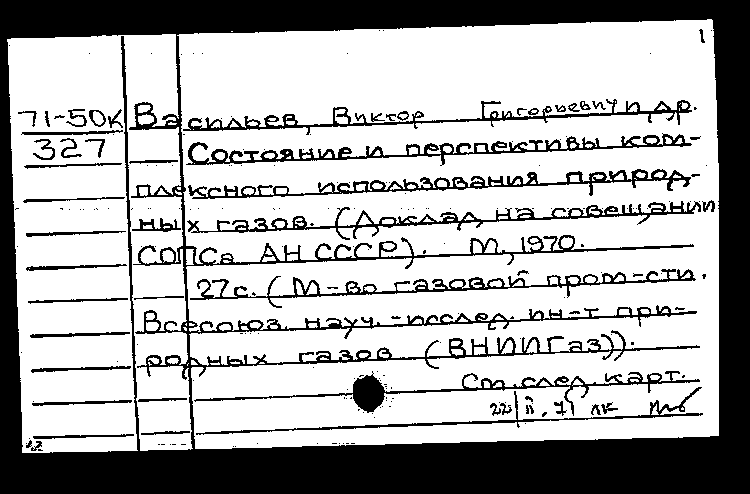 1
71-50к Васильев, Виктор Григорьевич и др.
327 Состояние и перспективы ком-
плексного использования природ-
ных газов. (Доклад на совещании
СОПСа АН СССР). М., 1970.
27с. (М-во газовой пром-сти.
Всесоюз. науч.-исслед. ин-т при-
родных газов (ВНИИГаз)).
См. след. карт.
22/II.71 лк